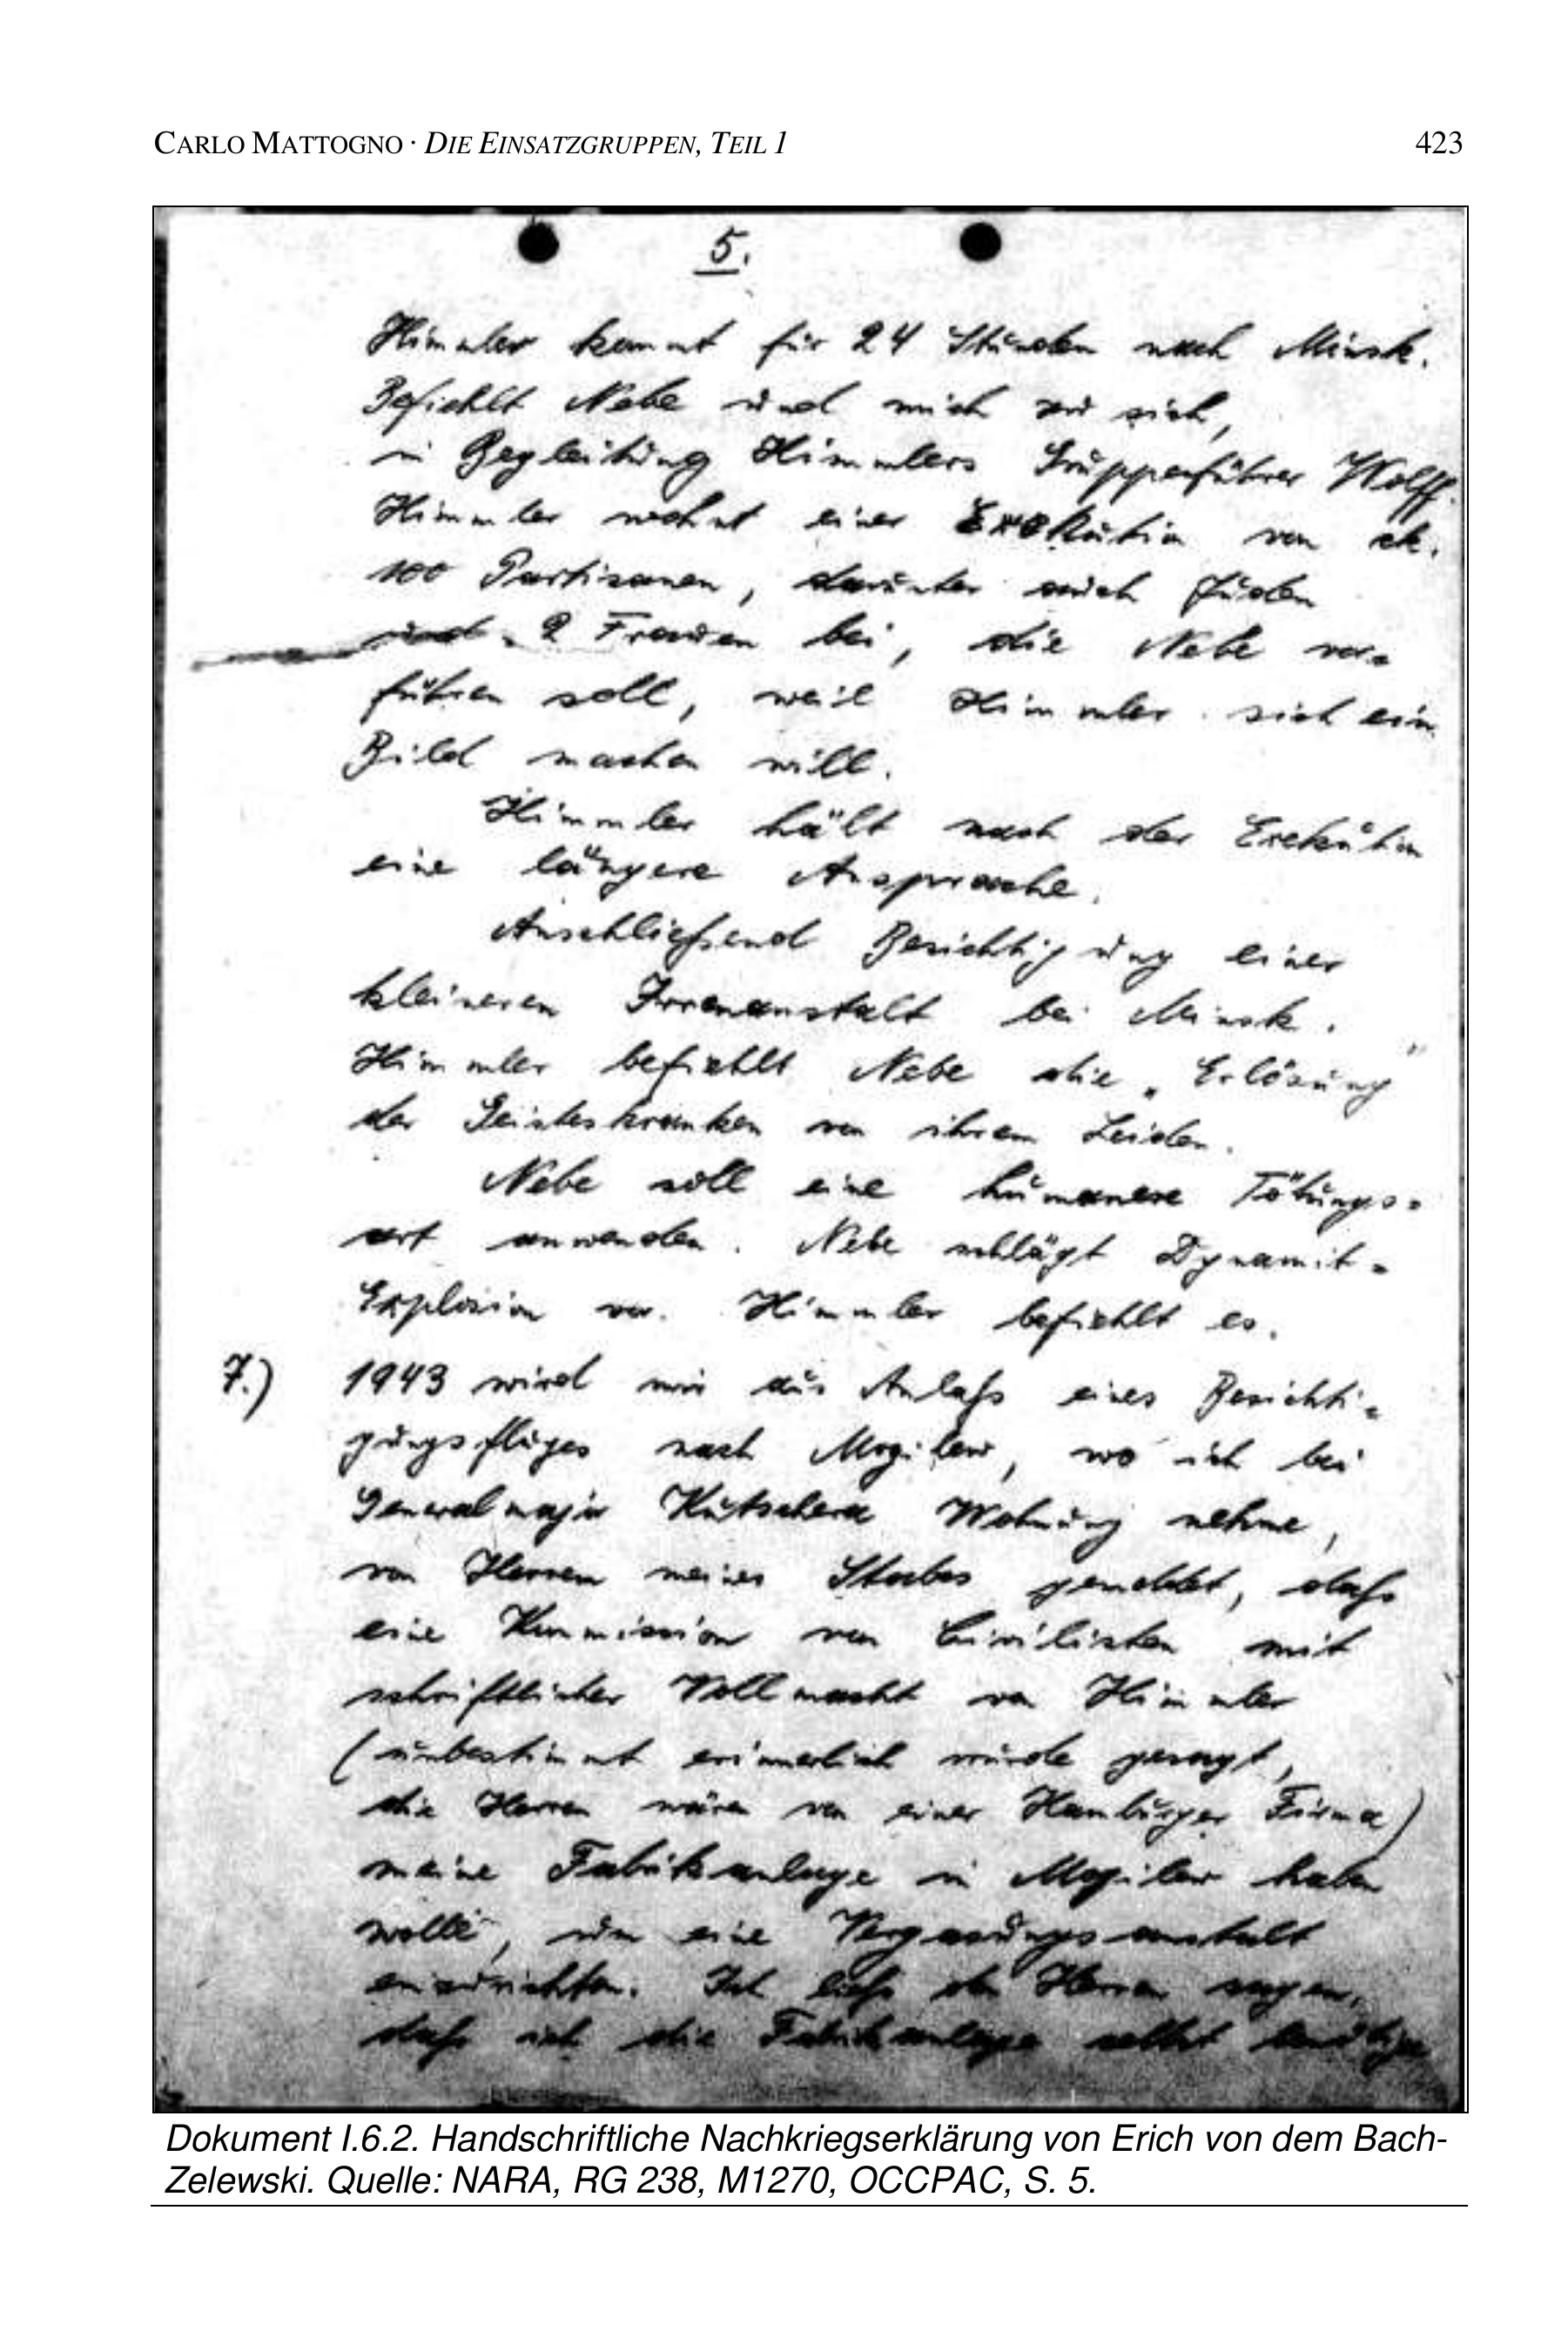 CARLO MATTOGNO · DIE EINSATZGRUPPEN, TEIL 1 423
5.
Himmler kommt für 24 Stunden nach Minsk.
Befiehlt Nebe und mich zu sich,
in Begleitung Himmlers Gruppenführer Wolff.
Himmler wohnt einer Exekution von
100 Partisanen, darunter auch Juden
und 2 Frauen bei, die Nebe vor-
führen soll, weil Himmler sich ein
Bild machen will.
Himmler hält nach der Exekution
eine längere Ansprache.
Anschließend Besichtigung einer
kleineren Irrenanstalt bei Minsk.
Himmler befiehlt Nebe die „Erlösung"
der Geisteskranken von ihrem Leiden.
Nebe soll eine humanere Tötungs-
art anwenden. Nebe schlägt Dynamit-
Explosion vor. Himmler befiehlt es.
7.) 1943 wird mir aus Anlaß eines Besichti-
gungsfluges nach Mogilew, wo ich bei
Generalmajor Kutschera Wohnung nehme,
von Herren meines Stabes gemeldet, daß
eine Kommission von Civilisten mit
schriftlicher Vollmacht von Himmler
(unbestimmt erinnerlich wurde gesagt,
die Herren wären von einer Hamburger Firma)
meine Fabrikanlage in Mogilew haben
wolle, um eine Vergasungsanstalt
einzurichten. Ich ließ den Herren sagen,
daß ich die Fabrikanlage selbst benötige
Dokument I.6.2. Handschriftliche Nachkriegserklärung von Erich von dem Bach-
Zelewski. Quelle: NARA, RG 238, M1270, OCCPAC, S. 5.